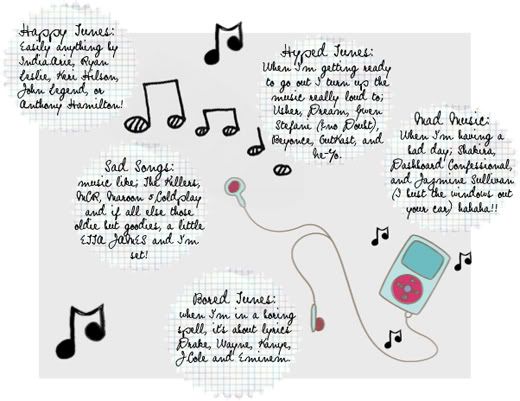 Happy Tunes:
Easily anything by
India.Arie, Ryan
Leslie, Keri Hilson,
John Legend, or
Anthony Hamilton!
Hyped Tunes:
When I'm getting ready
to go out I turn up the
music really loud to;
Usher, Dream, Gwen
Stefani (& no Doubt),
Beyonce, OutKast, and
Ne-Yo.
Mad Music:
When I'm having a
bad day; Shakira,
Dashboard Confessional,
and Jasmine Sullivan
(I bust the windows out
your car) hahaha!!
Sad Songs:
music like; The Killers,
MCR, Maroon 5, Coldplay
and if all else those
oldie but goodies, a little
ETTA JAMES and I'm
set!
Bored Tunes:
when I'm in a boring
spell, it's about lyrics
Drake, Wayne, Kanye,
J.Cole and Eminem.